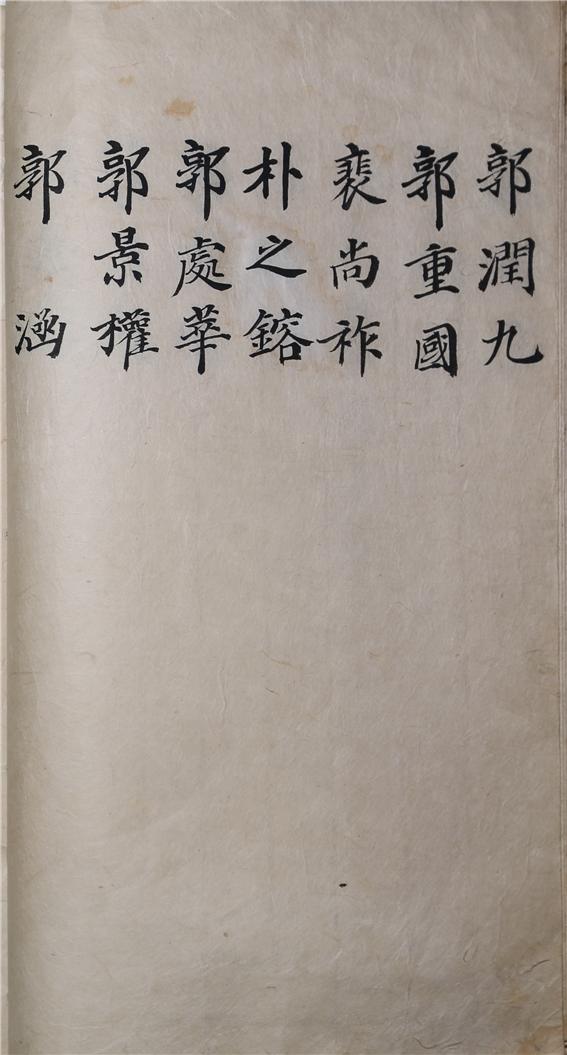 郭潤九
郭重國
裵尚祚
朴之鎔
郭處華
郭景權
郭涵